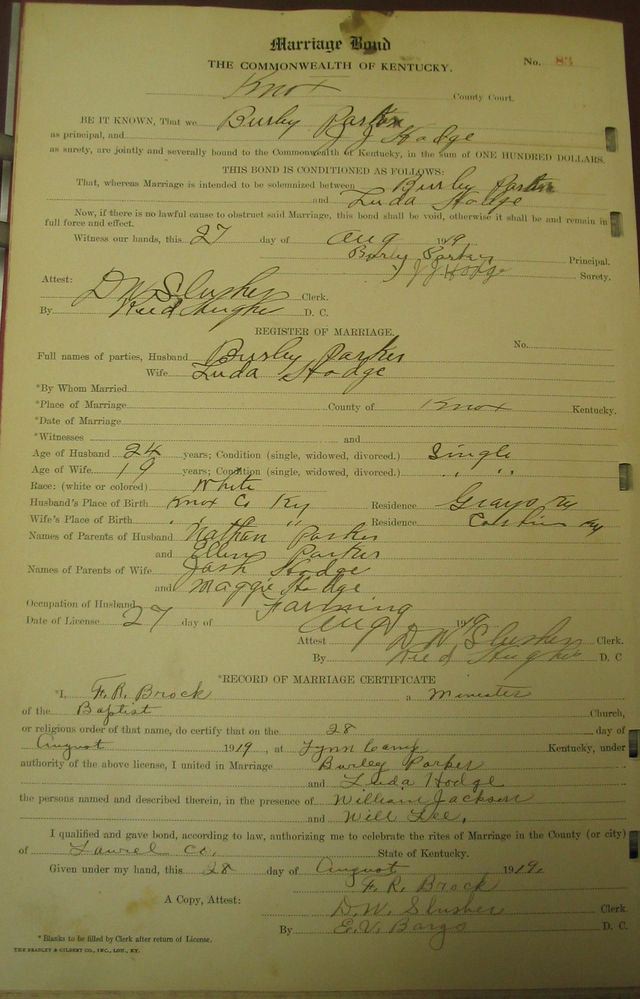 Marriage Bond
THE COMMONWEALTH OF KENTUCKY.
No. 83
Knox County Court.
BE IT KNOWN, That we Burley Parker
as principal, and J J Hodge
as surety, are jointly and severally bound to the Commonwealth of Kentucky, in the sum of ONE HUNDRED DOLLARS.
THIS BOND IS CONDITIONED AS FOLLOWS:
That, whereas Marriage is intended to be solemnized between Burley Parker
and Luda Hodge
Now, if there is no lawful cause to obstruct said Marriage, this bond shall be void, otherwise it shall be and remain in
full force and effect.
Witness our hands, this 27 day of Aug 1919
Burley Parker Principal.
J J Hodge Surety.
Attest:
D W Slusher Clerk.
By Reed Hughes D. C.
REGISTER OF MARRIAGE.
No.
Full names of parties, Husband Burley Parker
Wife Luda Hodge
*By Whom Married
*Place of Marriage County of Knox Kentucky.
*Date of Marriage
*Witnesses and
Age of Husband 24 years; Condition (single, widowed, divorced.) Single
Age of Wife 19 years; Condition (single, widowed, divorced.) " "
Race: (white or colored) White
Husband's Place of Birth Knox Co Ky Residence Grays Ky
Wife's Place of Birth " " Residence Ky
Names of Parents of Husband Nathan Parker
and Ellen Parker
Names of Parents of Wife Josh Hodge
and Maggie Hodge
Occupation of Husband Farming
Date of License 27 day of Aug 1919
Attest D W Slusher Clerk.
By Reed Hughes D. C
*RECORD OF MARRIAGE CERTIFICATE
*I, F. R. Brock a Minister
of the Baptist Church,
or religious order of that name, do certify that on the 28 day of
August 1919, at Lynn Camp Kentucky, under
authority of the above license, I united in Marriage Burley Parker
and Luda Hodge
the persons named and described therein, in the presence of William Jackson
and Will Lee.
I qualified and gave bond, according to law, authorizing me to celebrate the rites of Marriage in the County (or city)
of Laurel Co. State of Kentucky.
Given under my hand, this 28 day of August 1919.
F. R. Brock
A Copy, Attest:
D. W. Slusher Clerk.
By E. V. Bargo D. C.
*Blanks to be filled by Clerk after return of License.
THE BRADLEY & GILBERT CO., INC., LOU., KY.